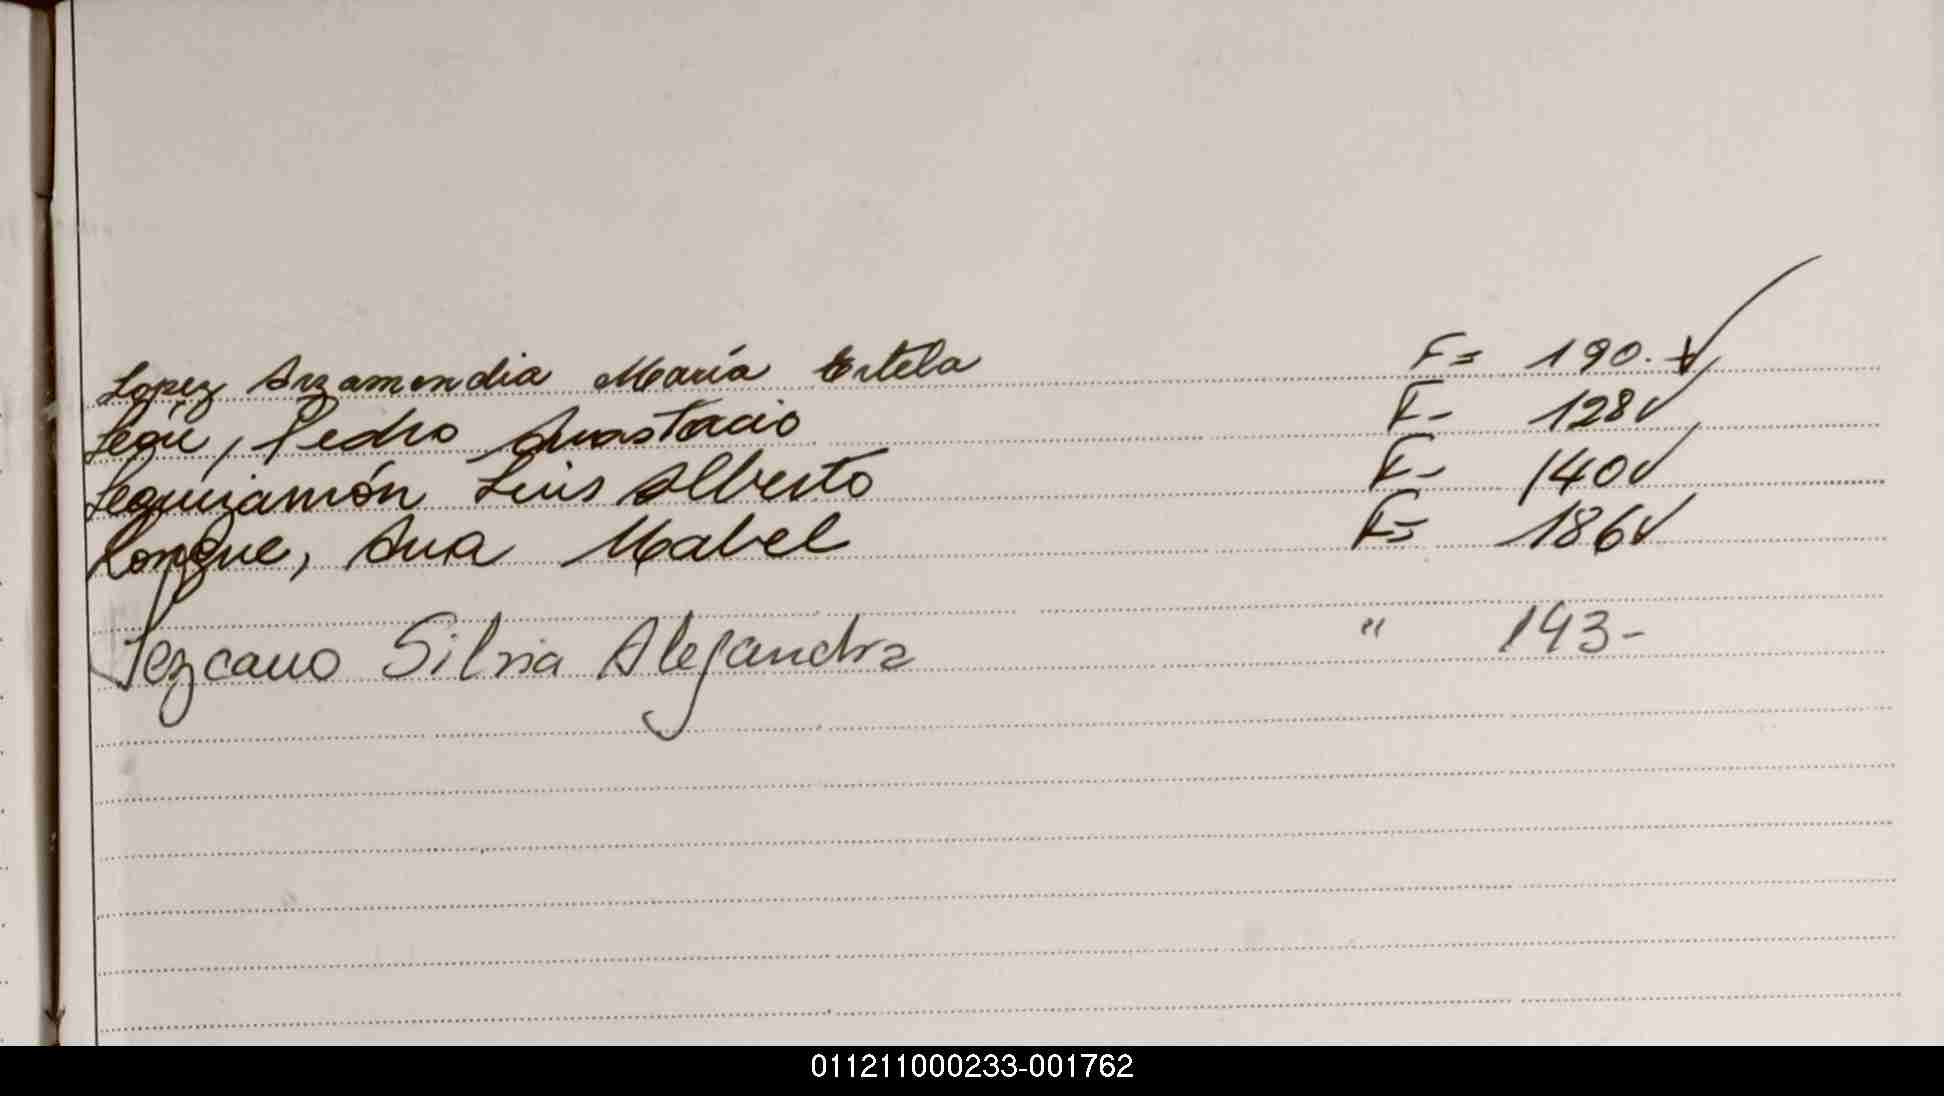 Lopez Arzamendia María Estela F= 190. ✓
Legui, Pedro Anastacio F- 128 ✓
Leguizamón Luis Alberto F- 140 ✓
Longue, Ana Mabel F= 186 ✓
Lezcano Silvia Alejandra " 143-
011211000233-001762